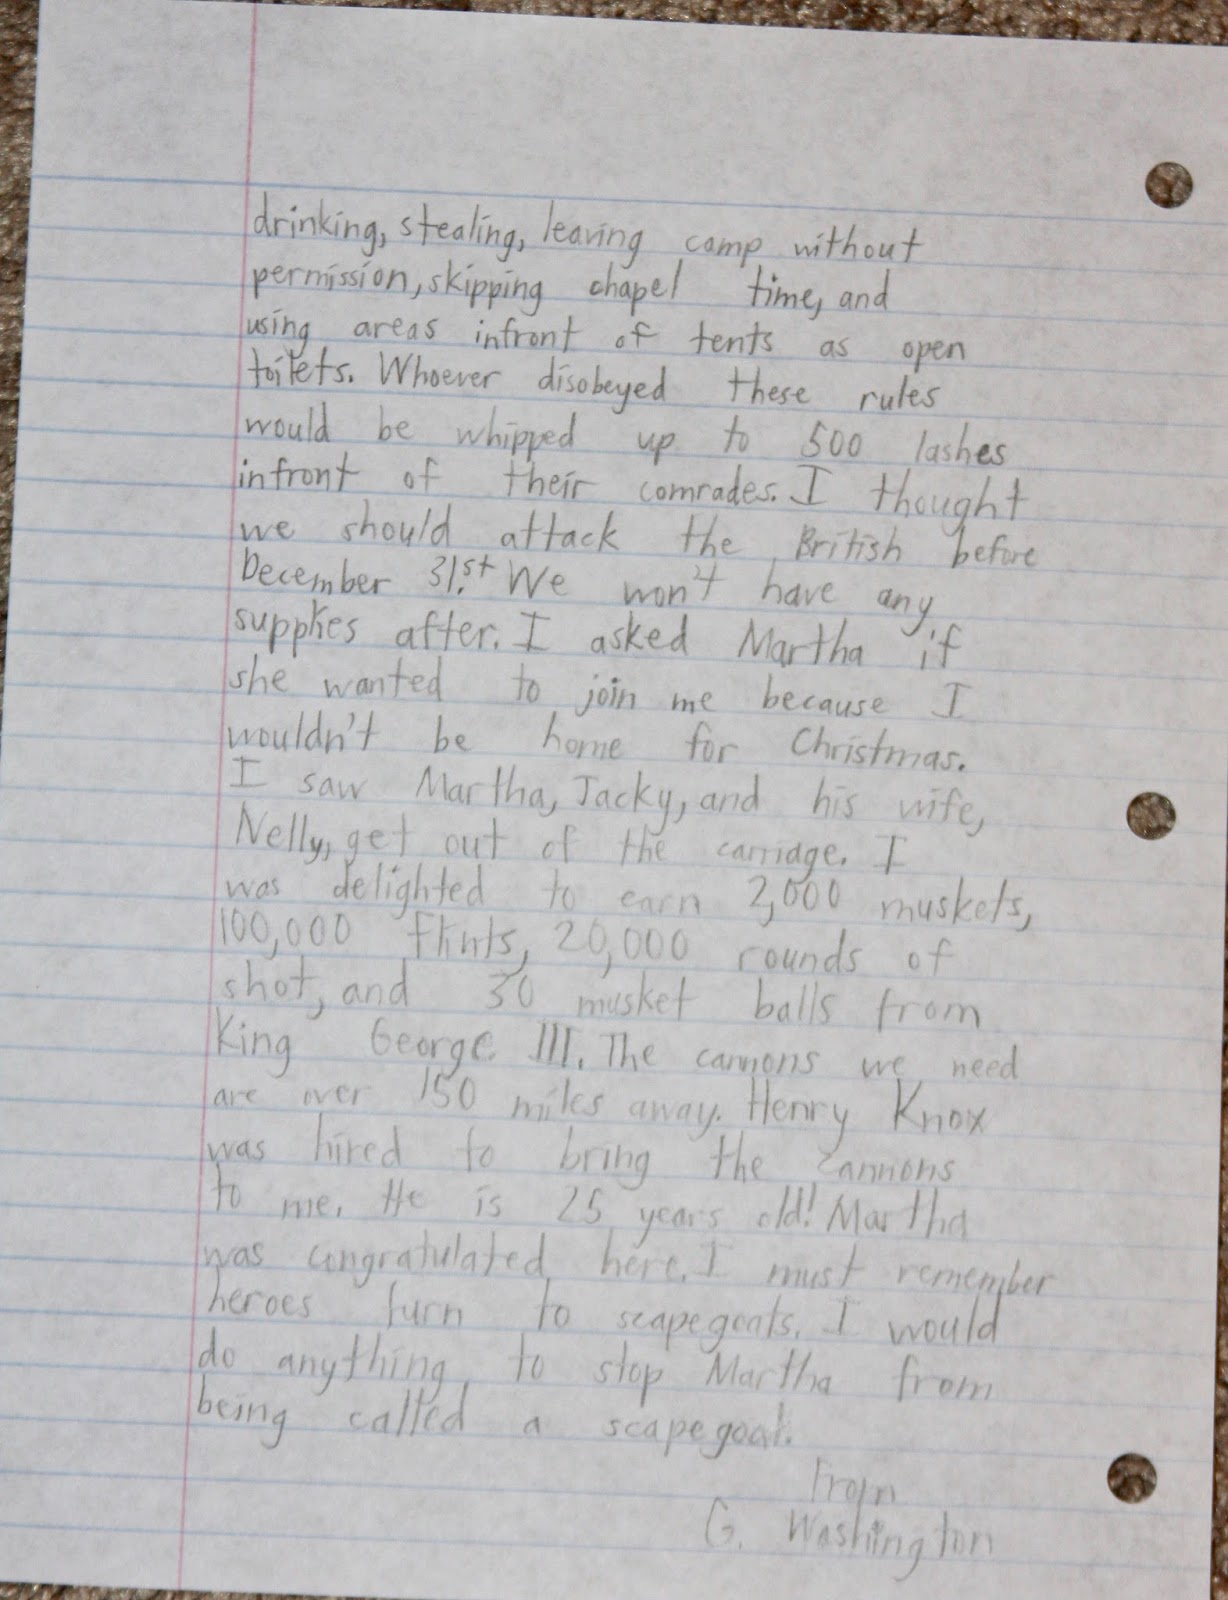 drinking, stealing, leaving camp without
permission, skipping chapel time, and
using areas infront of tents as open
toilets. Whoever disobeyed these rules
would be whipped up to 500 lashes
infront of their comrades. I thought
we should attack the British before
December 31.st We won't have any
supplies after. I asked Martha if
she wanted to join me because I
wouldn't be home for Christmas.
I saw Martha, Jacky, and his wife,
Nelly, get out of the carriage. I
was delighted to earn 2,000 muskets,
100,000 flints, 20,000 rounds of
shot, and 30 musket balls from
King George III. The cannons we need
are over 150 miles away. Henry Knox
was hired to bring the cannons
to me. He is 25 years old! Martha
was congratulated here. I must remember
heroes turn to scapegoats. I would
do anything to stop Martha from
being called a scapegoat.
From
G. Washington